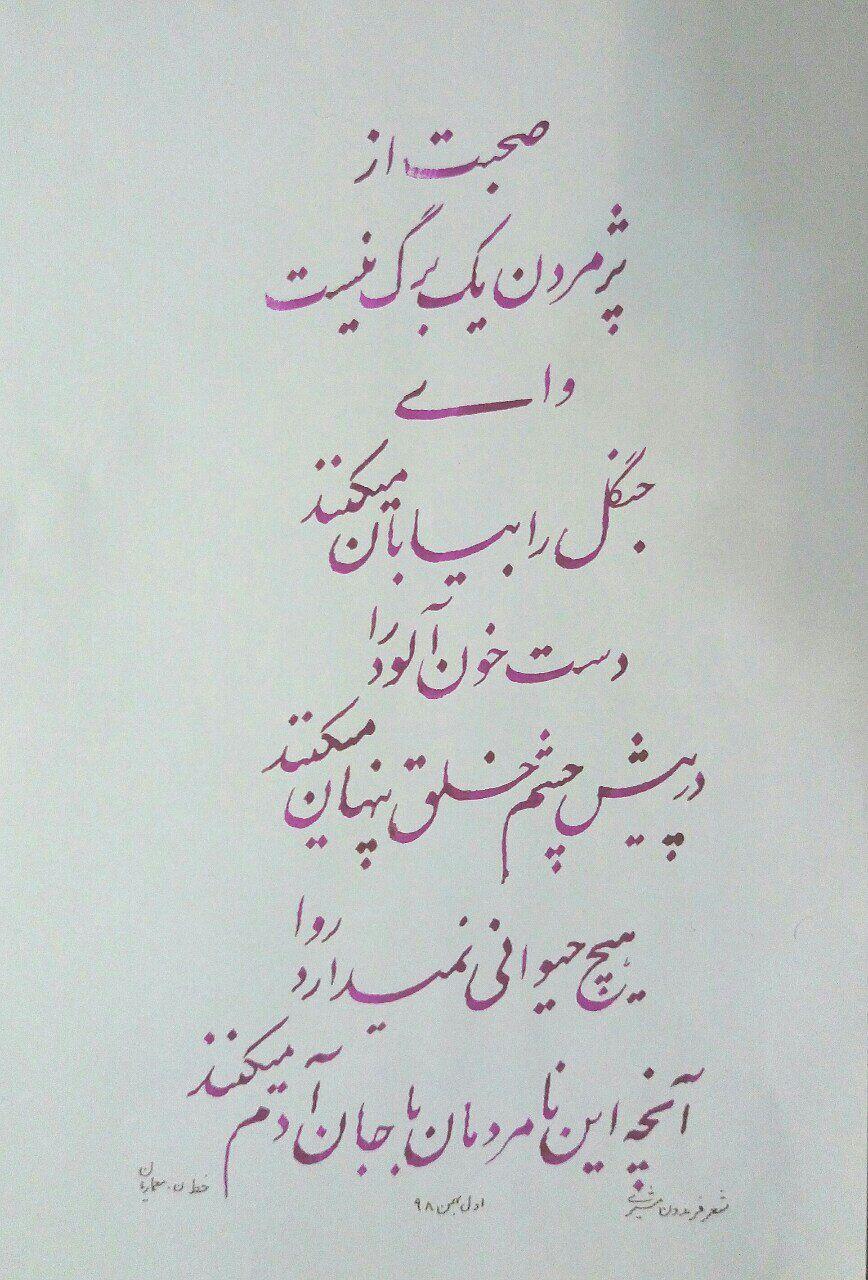 صحبت از
پژمردن یک برگ نیست
وای
جنگل را بیابان میکنند
دست خون آلود را
در پیش چشم خلق پنهان میکنند
هیچ حیوانی نمیدارد روا
آنچه این نامردمان با جان آدم میکنند
شعر فریدون مشیری
اول بهمن ۹۸
خط ن.